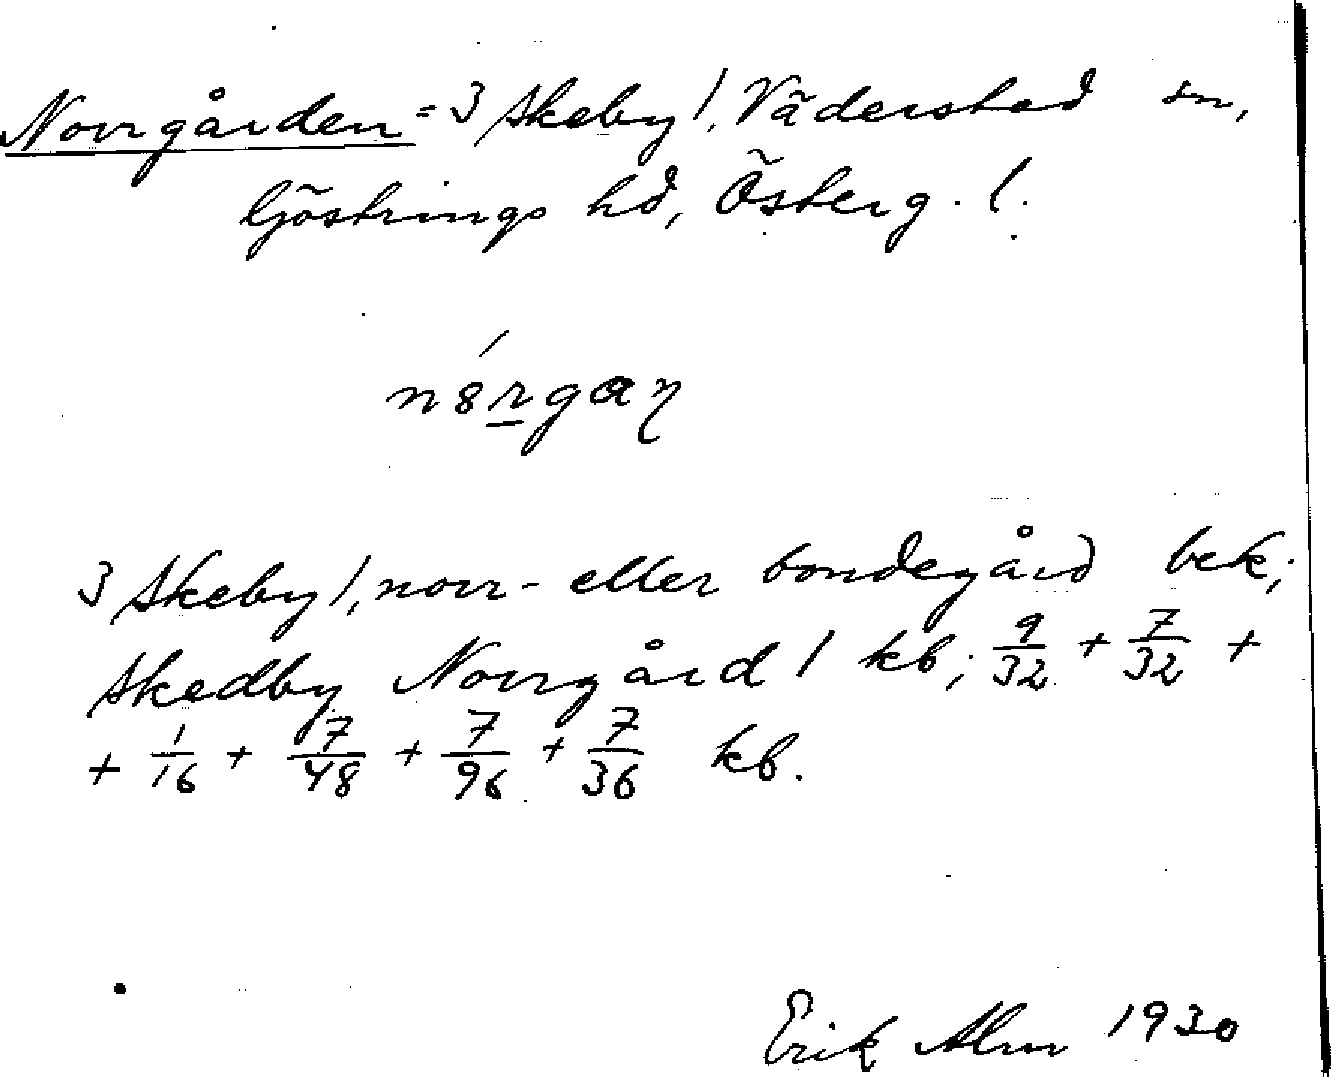 Norrgården = 3 Skeby 1, Väderstad sn,
Göstrings hd, Österg. l.
3 Skeby 1, norr- eller bondegård bek;
Skedby Norrgård 1 kb; 9/32 + 7/32 +
+ 1/16 + 7/48 + 7/96 + 7/36 kb.
Erik Alm 1930